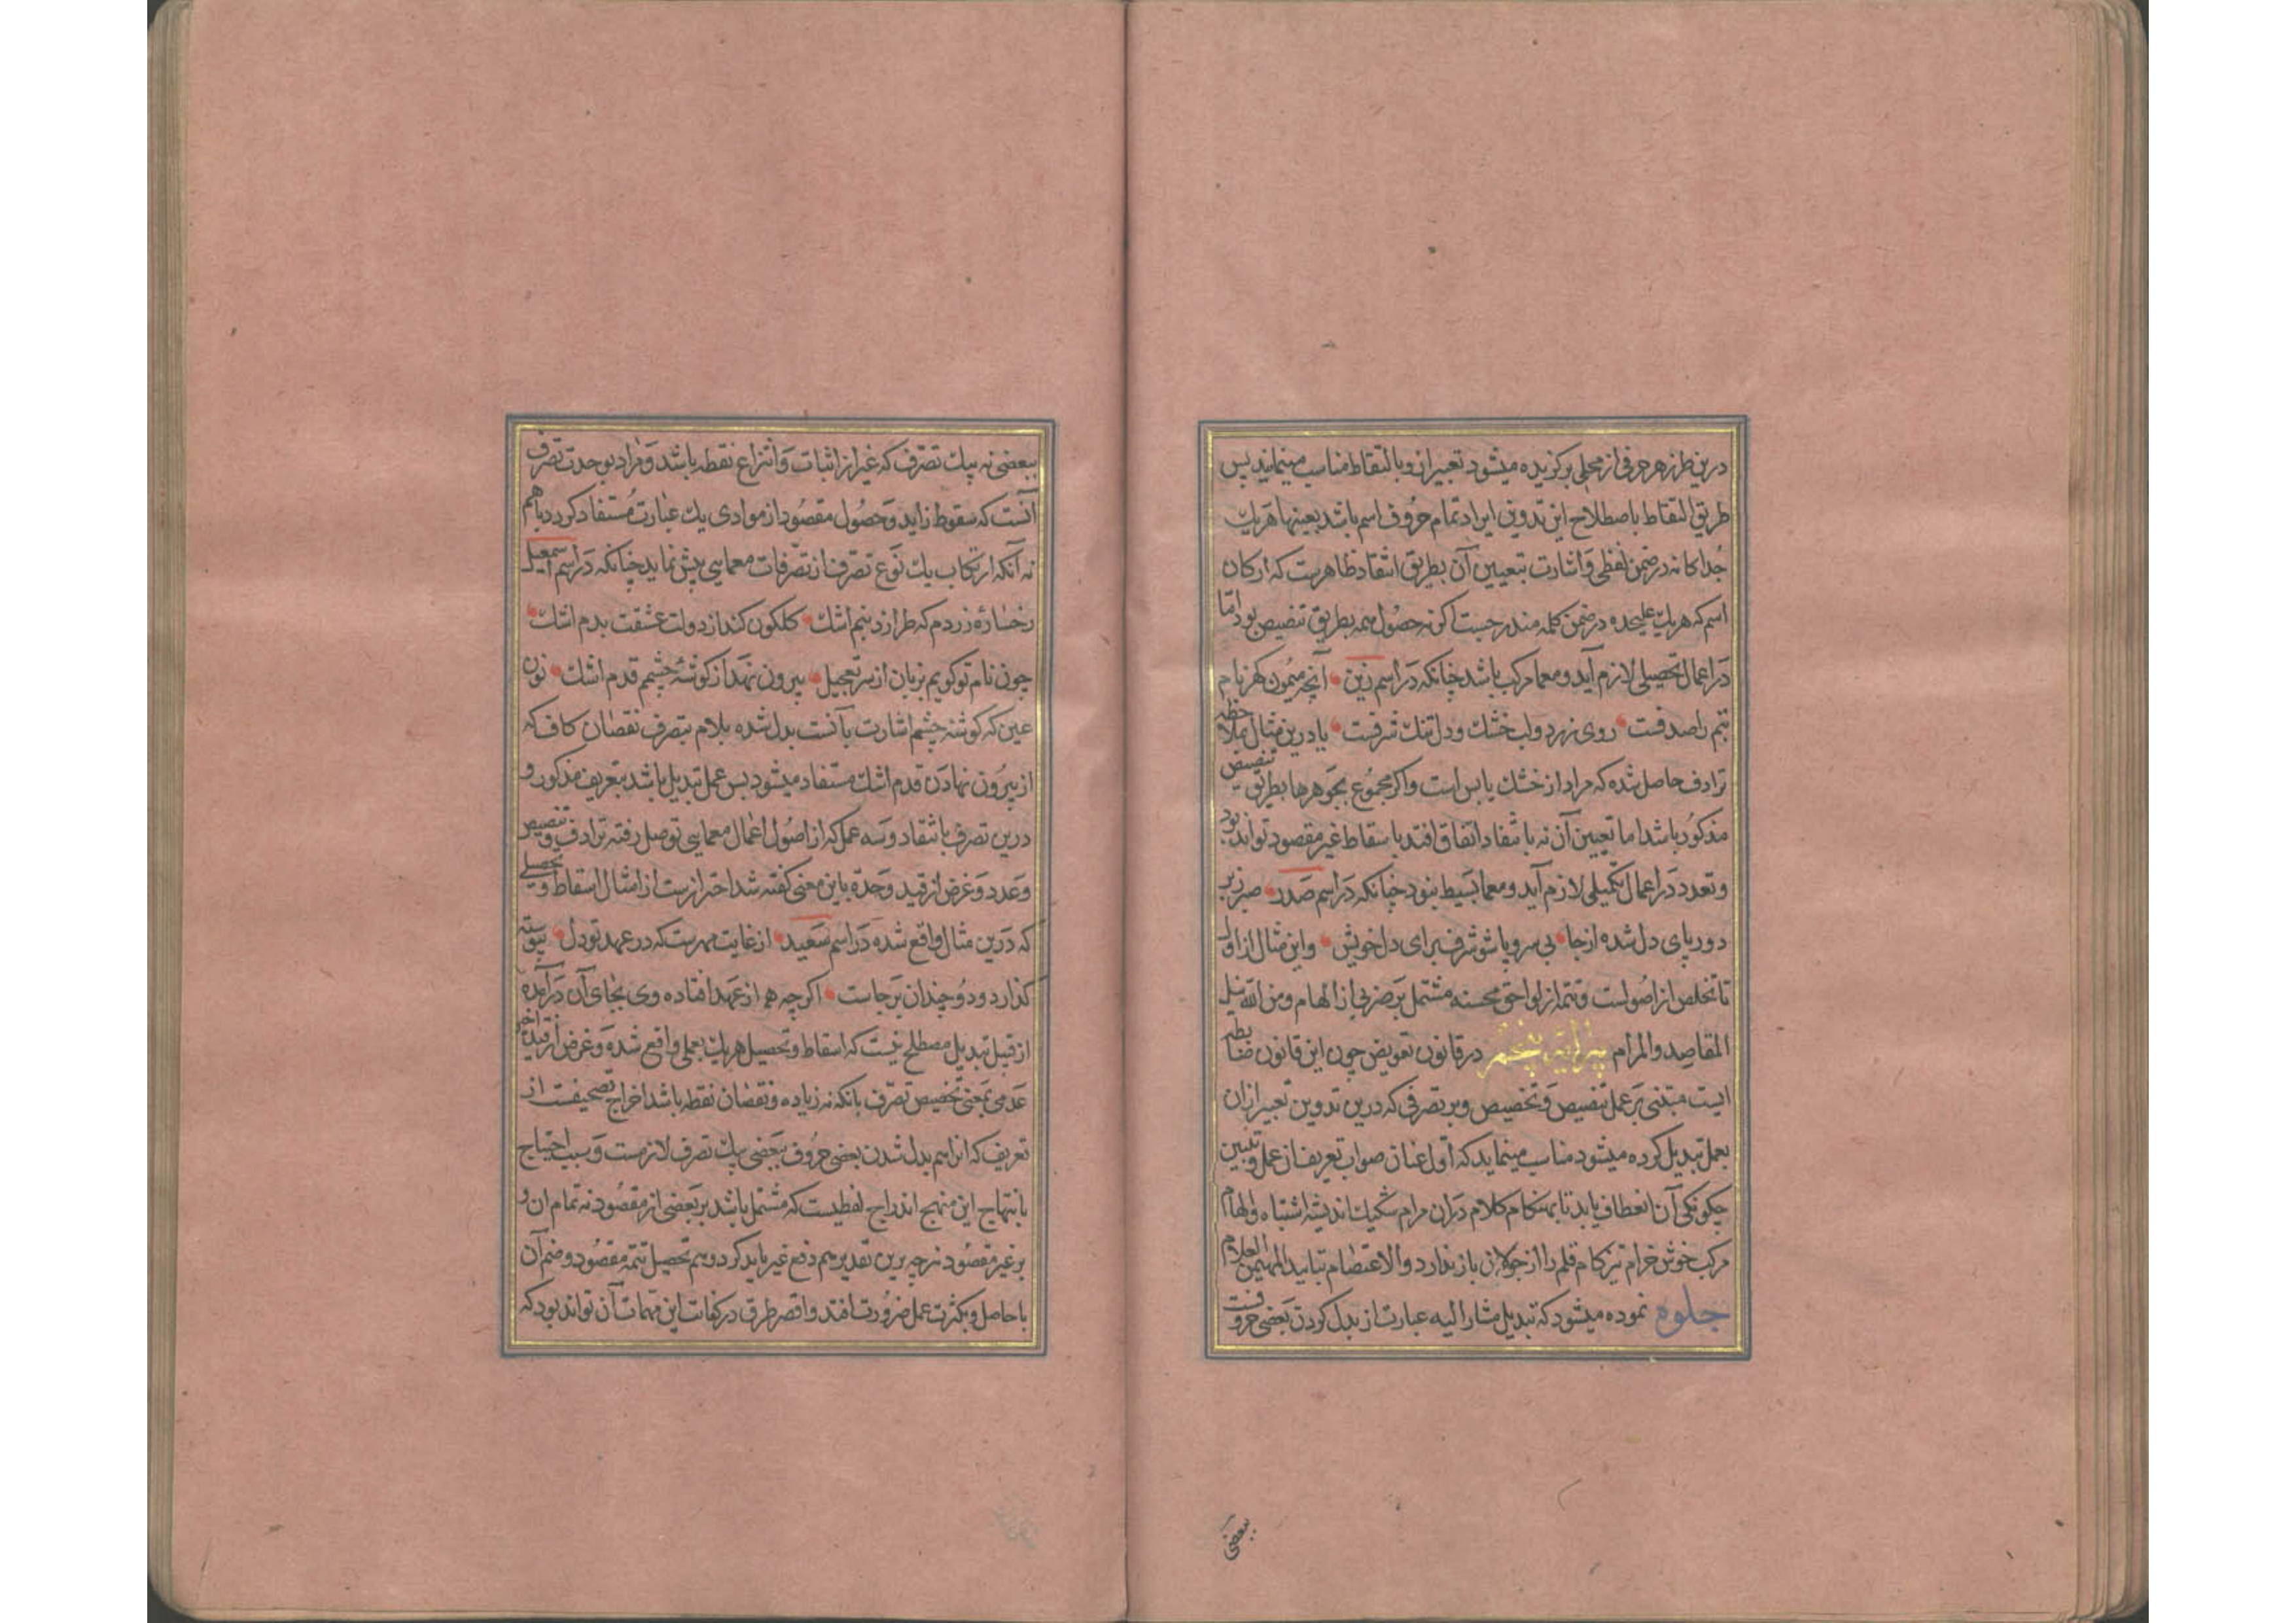 درین طرز هر حرفی از محلی برکزیده میشود تعبیر ازو بالتقاط مناسب مینماید پس
طریق التقاط باصطلاح این تدوین ایراد تمام حروف اسم باشد بعینها هریك
جداکانه در ضمن لفظی و اشارت بتعیین آن بطریق انتقاد ظاهرست که ارکان
اسم که هریك علیحده در ضمن کلمه مندرجست اکر نه حصول همه بطریق تنصیص بود امّا
در اعمال تحصیلی لازم آید و معما مرکب باشد چنانکه در اسم زین آنچه میمون کهر نام
تیم را صدفت روی زرد و لب خشك و دل تنك شرفت یا درین مثال بملاحظه
ترادف حاصل شده که مراد از خشك یابس است واکر مجموع بجوهرها بطریق تنصیص
مذکور باشد اما تعیین آن نه بانتقاد اتفاق افتد باسقاط غیر مقصود تواند بود
و تعدد در اعمال تکمیلی لازم آید و معما بسیط نبود چنانکه در اسم صدر صبر زیر
دور پای دل شده از جا بی سر و پا شو شرف برای دل خویش و این مثال از اول
تا تخلص از اصولست و تتمه از لواحق محسنه مشتمل بر ضربی از الهام و من الله نیل
المقاصد والمرام پیرایه پنجم در قانون تعویض چون این قانون ضابطه
ایست مبتنی بر عمل تنصیص و تخصیص و بر تصرفی که درین تدوین تعبیر ازان
بعمل تبدیل کرده میشود مناسب مینماید که اول عنان صواب تعریف از عمل و تبیین
چکونکی آن انعطاف یابد تا بهنکام کلام دران مرام تشکیك اندیشه اشتباه و ابهام
مرکب خوش خرام تیزکام قلم را از جولان باز ندارد والاعتصام بتایید المهیمن العلام
جلوه نموده میشود که تبدیل مشار الیه عبارت از بدل کردن بعضی حروفست
ببعضی
ببعضی نه بیك تصرف که غیر از اثبات و انتزاع نقطه باشد و مراد بوحدت تصرف
آنست که سقوط زاید و حصول مقصود از موادی یك عبارت مستفاد کردد باهم
نه آنکه ارتکاب یك نوع تصرف از تصرفات معمایی پیش نماید چنانکه در اسم اسمعیل
رخساره زردم که طرازد بنم اشك کلکون کند از دولت عشقت بدم اشك
چون نام تو کویم بزبان از سر تعجیل بیرون نهد از کوشهٔ چشمم قدم اشك نون
عین که کوشهٔ چشم اشارت بآنست بدل شده بلام بتصرف نقصان کاف که
از بیرون نهادن قدم اشك مستفاد میشود بس عمل تبدیل باشد بتعریف مذکور و
درین تصرف بانتقاد و سه عمل که از اصول اعمال معمایی توصل رفته ترادف و تنصیص
و عدد و غرض از قید وحدة باین معنی کفته شد احترازست از امثال اسقاط و تحصیلی
که درین مثال واقع شده در اسم سعید از غایت مهرست که در عهد تو دل پیوسته
کذارد و دو چندان بر جاست اکرچه هم از عهد افتاده وی بجای آن درآمده
از قبیل تبدیل مصطلح نیست که اسقاط و تحصیل هریك بعملی واقع شده و غرض از قید اخیر
عدمی بمعنی تخصیص تصرف بانکه نه زیاده و نقصان نقطه باشد اخراج تصحیفست از
تعریف که انرا هم بدل شدن بعضی حروف ببعضی بیك تصرف لازمست و سبب احتیاج
بانتهاج این منهج اندراج لفظیست که مشتمل باشد بر بعضی از مقصود نه تمام ان و
بر غیر مقصود نیز چه برین تقدیر هم دفع غیر باید کرد و هم تحصیل تتمهٔ مقصود و ضم آن
با حاصل و بکثرت عمل ضرورت افتد و اقصر طرق در کفایت این مهمات آن تواند بود که